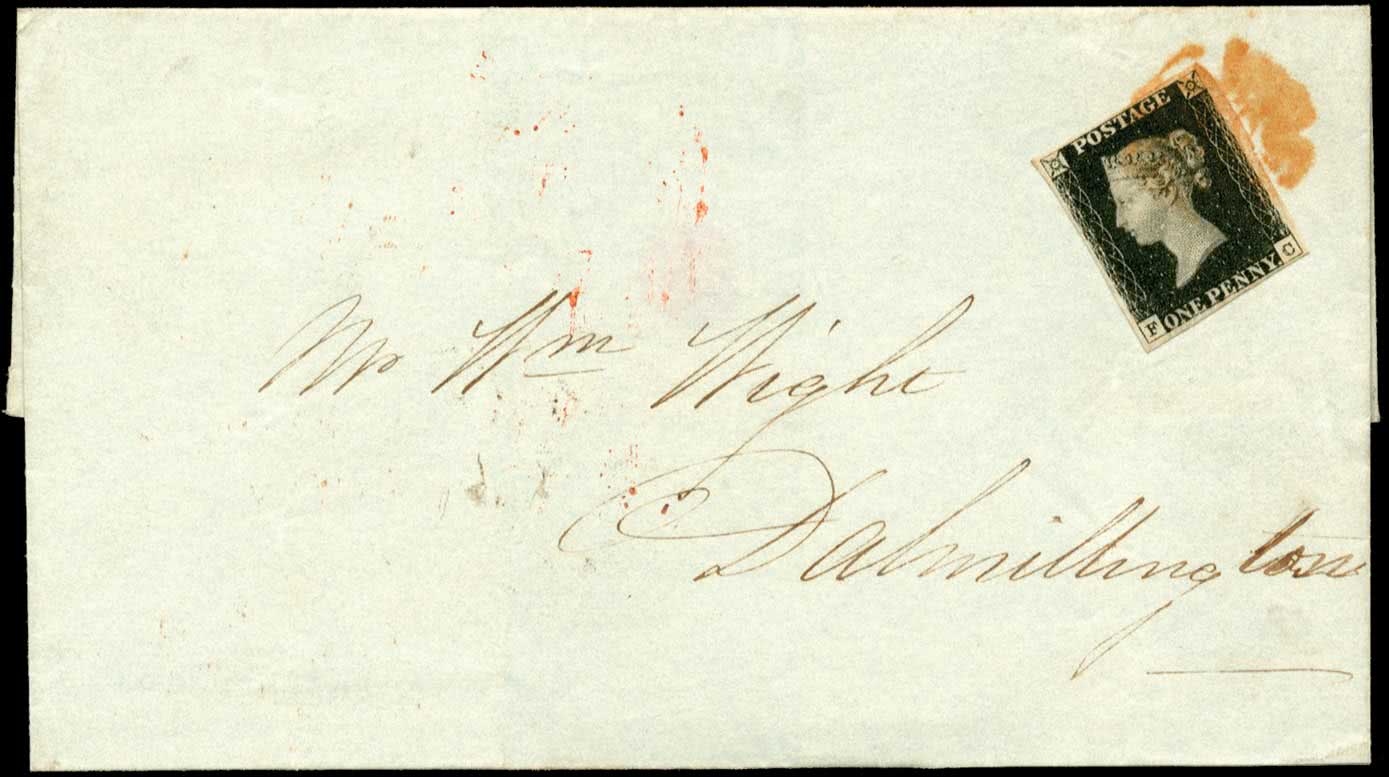 POSTAGE
F ONE PENNY C
Mr Wm Wight
Dalmillington